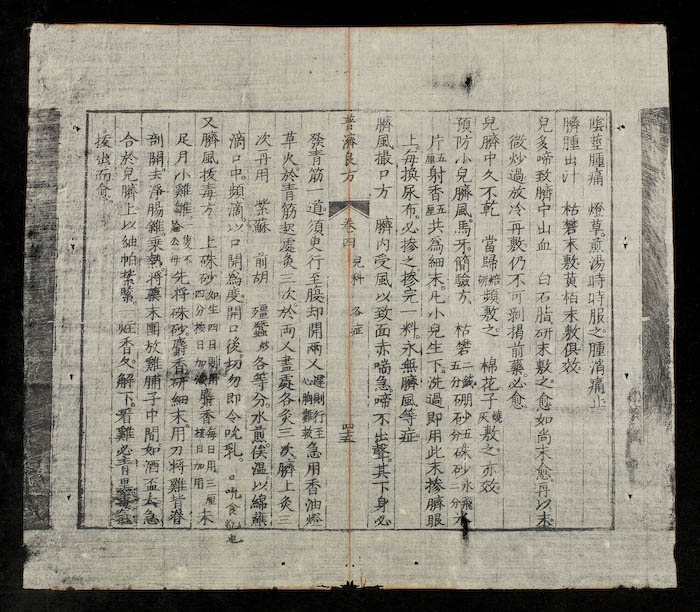 陰莖腫痛　燈草煎湯時時服之腫消痛止
臍腫出汁　枯礬末敷黃栢末敷俱效
兒多啼致臍中出血　白石脂研末敷之愈如尚未愈再以末
微炒過放冷再敷仍不可剝揭前藥必愈
兒臍中久不乾　當歸焙研頻敷之　棉花子燒灰敷之亦效
預防小兒臍風馬牙簡驗方　枯礬二錢五分硼砂五分硃砂水飛二分冰
片五厘射香五厘共為細末凡小兒生下洗過即用此末摻臍眼
上每換尿布必摻之摻完一料永無臍風等症
臍風撮口方　臍內受風以致面赤喘急啼不出聲其下身必
普濟良方　卷四　兒科　各症　四五
發青筋一道須臾行至腹却開兩乂遲則行至心胸難救急用香油燈
草火於青筋起處灸三次於兩乂盡處各灸三次臍上灸三
次再用　紫蘇　前胡　殭蠶炒各等分水煎俟溫以綿蘸
滴口中頻滴以口開為度開口後切勿即令吮乳
又臍風拔毒方　上硃砂如生四日則用四分按日加減麝香每日用三厘按日加用末
足月小雞雛一隻不論公母先將硃砂麝香研細末用刀將雞背脊
剖開去淨腸雜乘熱將藥末團放雞脯子中間如酒盃大急
合於兒臍上以紬帕紮緊一炷香久解下看雞必青黑
拔出而愈